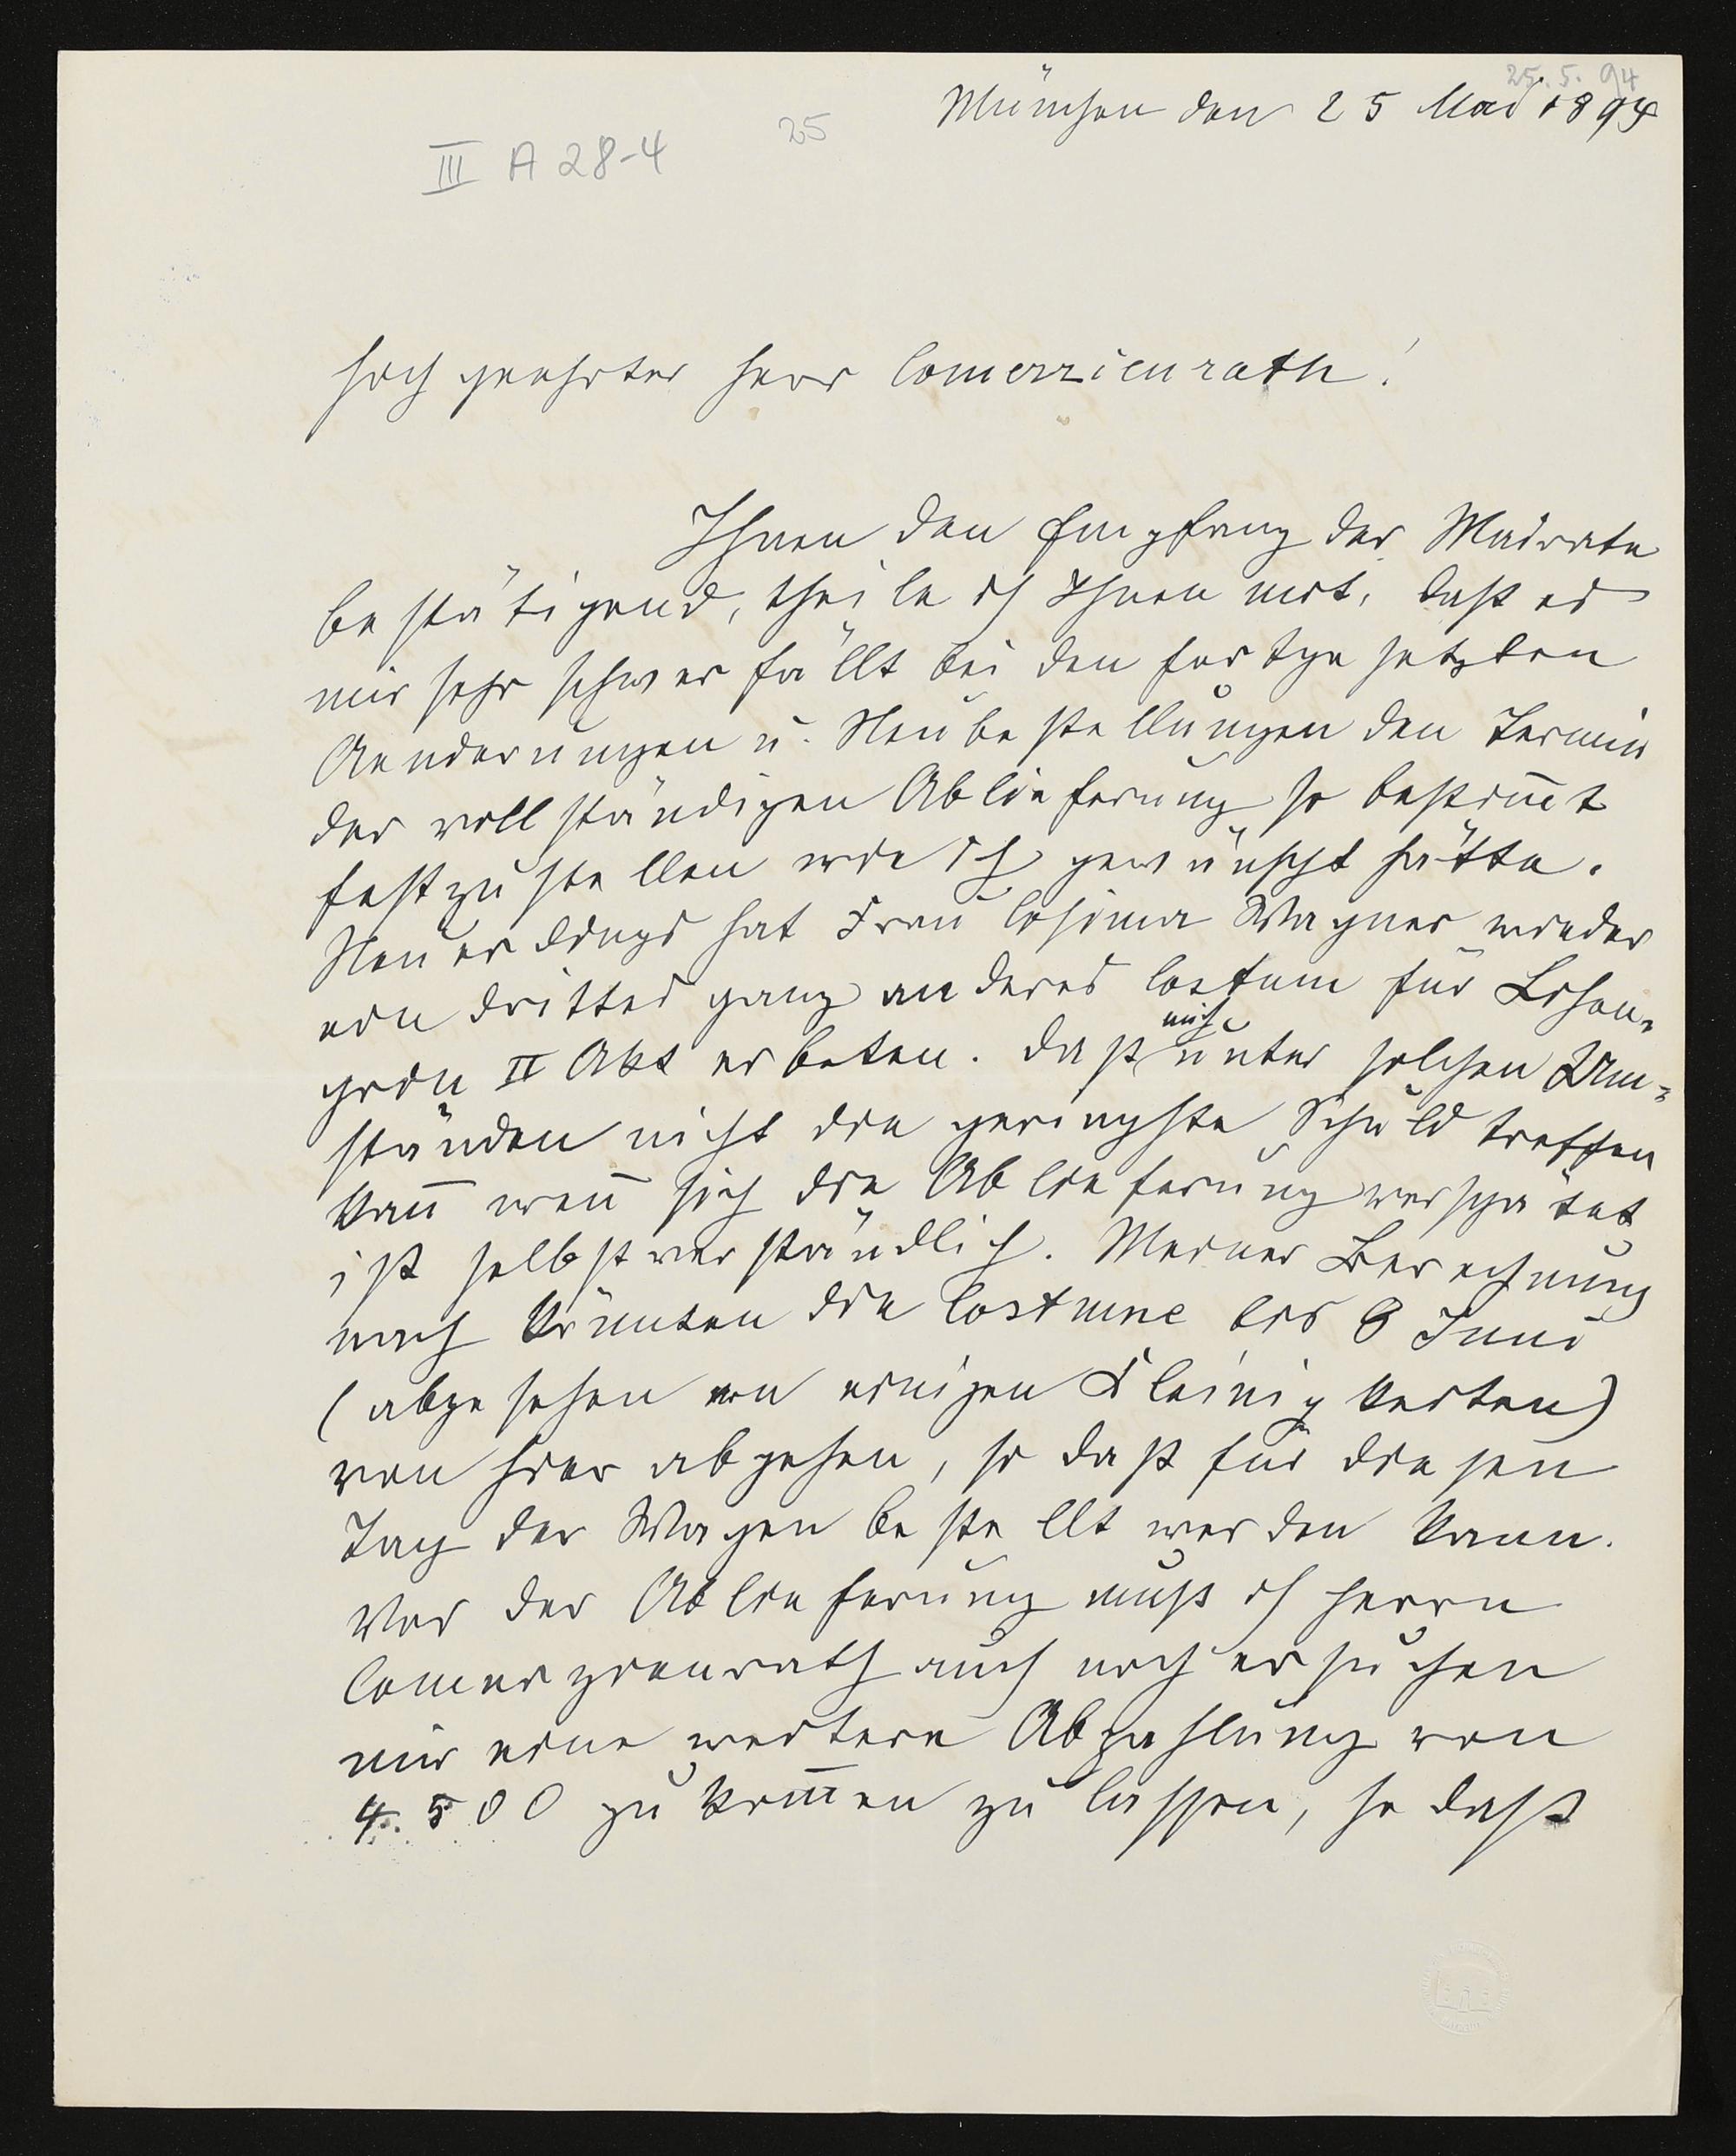 25. 5. 94
München den 25 Mai 1894
25
III A 28-4
Hoch geehrter Herr Comerzienrath!
Ihnen den Empfang der Mairate
bestätigend, theile ich Ihnen mit, daß es
mir sehr schwer fällt bei den fortgesetzten
Aenderungen u. Neubestellungen den Termin
der vollständigen Ablieferung so bestim̅t
festzustellen wie ich gewünscht hätte.
Neuerdings hat Frau Cosima Wagner wieder
ein drittes ganz anderes Costum für Lohen-
grin II Akt erbeten. Daß mich unter solchen Um-
ständen nicht die geringste Schuld treffen
kan̅ wen̅ sich die Ablieferung verspätet
ist selbstverständlich. Meiner Berechnung
nach könnten die Costume bis 8 Juni
(abgesehen von einigen Kleinigkeiten)
von hier abgehen, so daß für diesen
Tag der Wagen bestellt werden kann.
Vor der Ablieferung muß ich Herrn
Comerzienrath auch noch ersuchen
mir eine weitere Abzahlung von
4.500 zukom̅en zu lassen, so daß